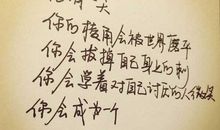 你的棱角会被世界磨平
你会拔掉自己身上的刺
你会学着对自己讨厌的人微笑
你会成为一个